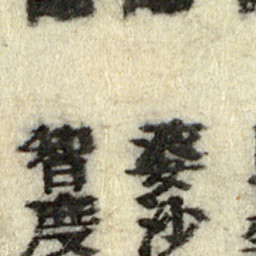 婆沙
智度